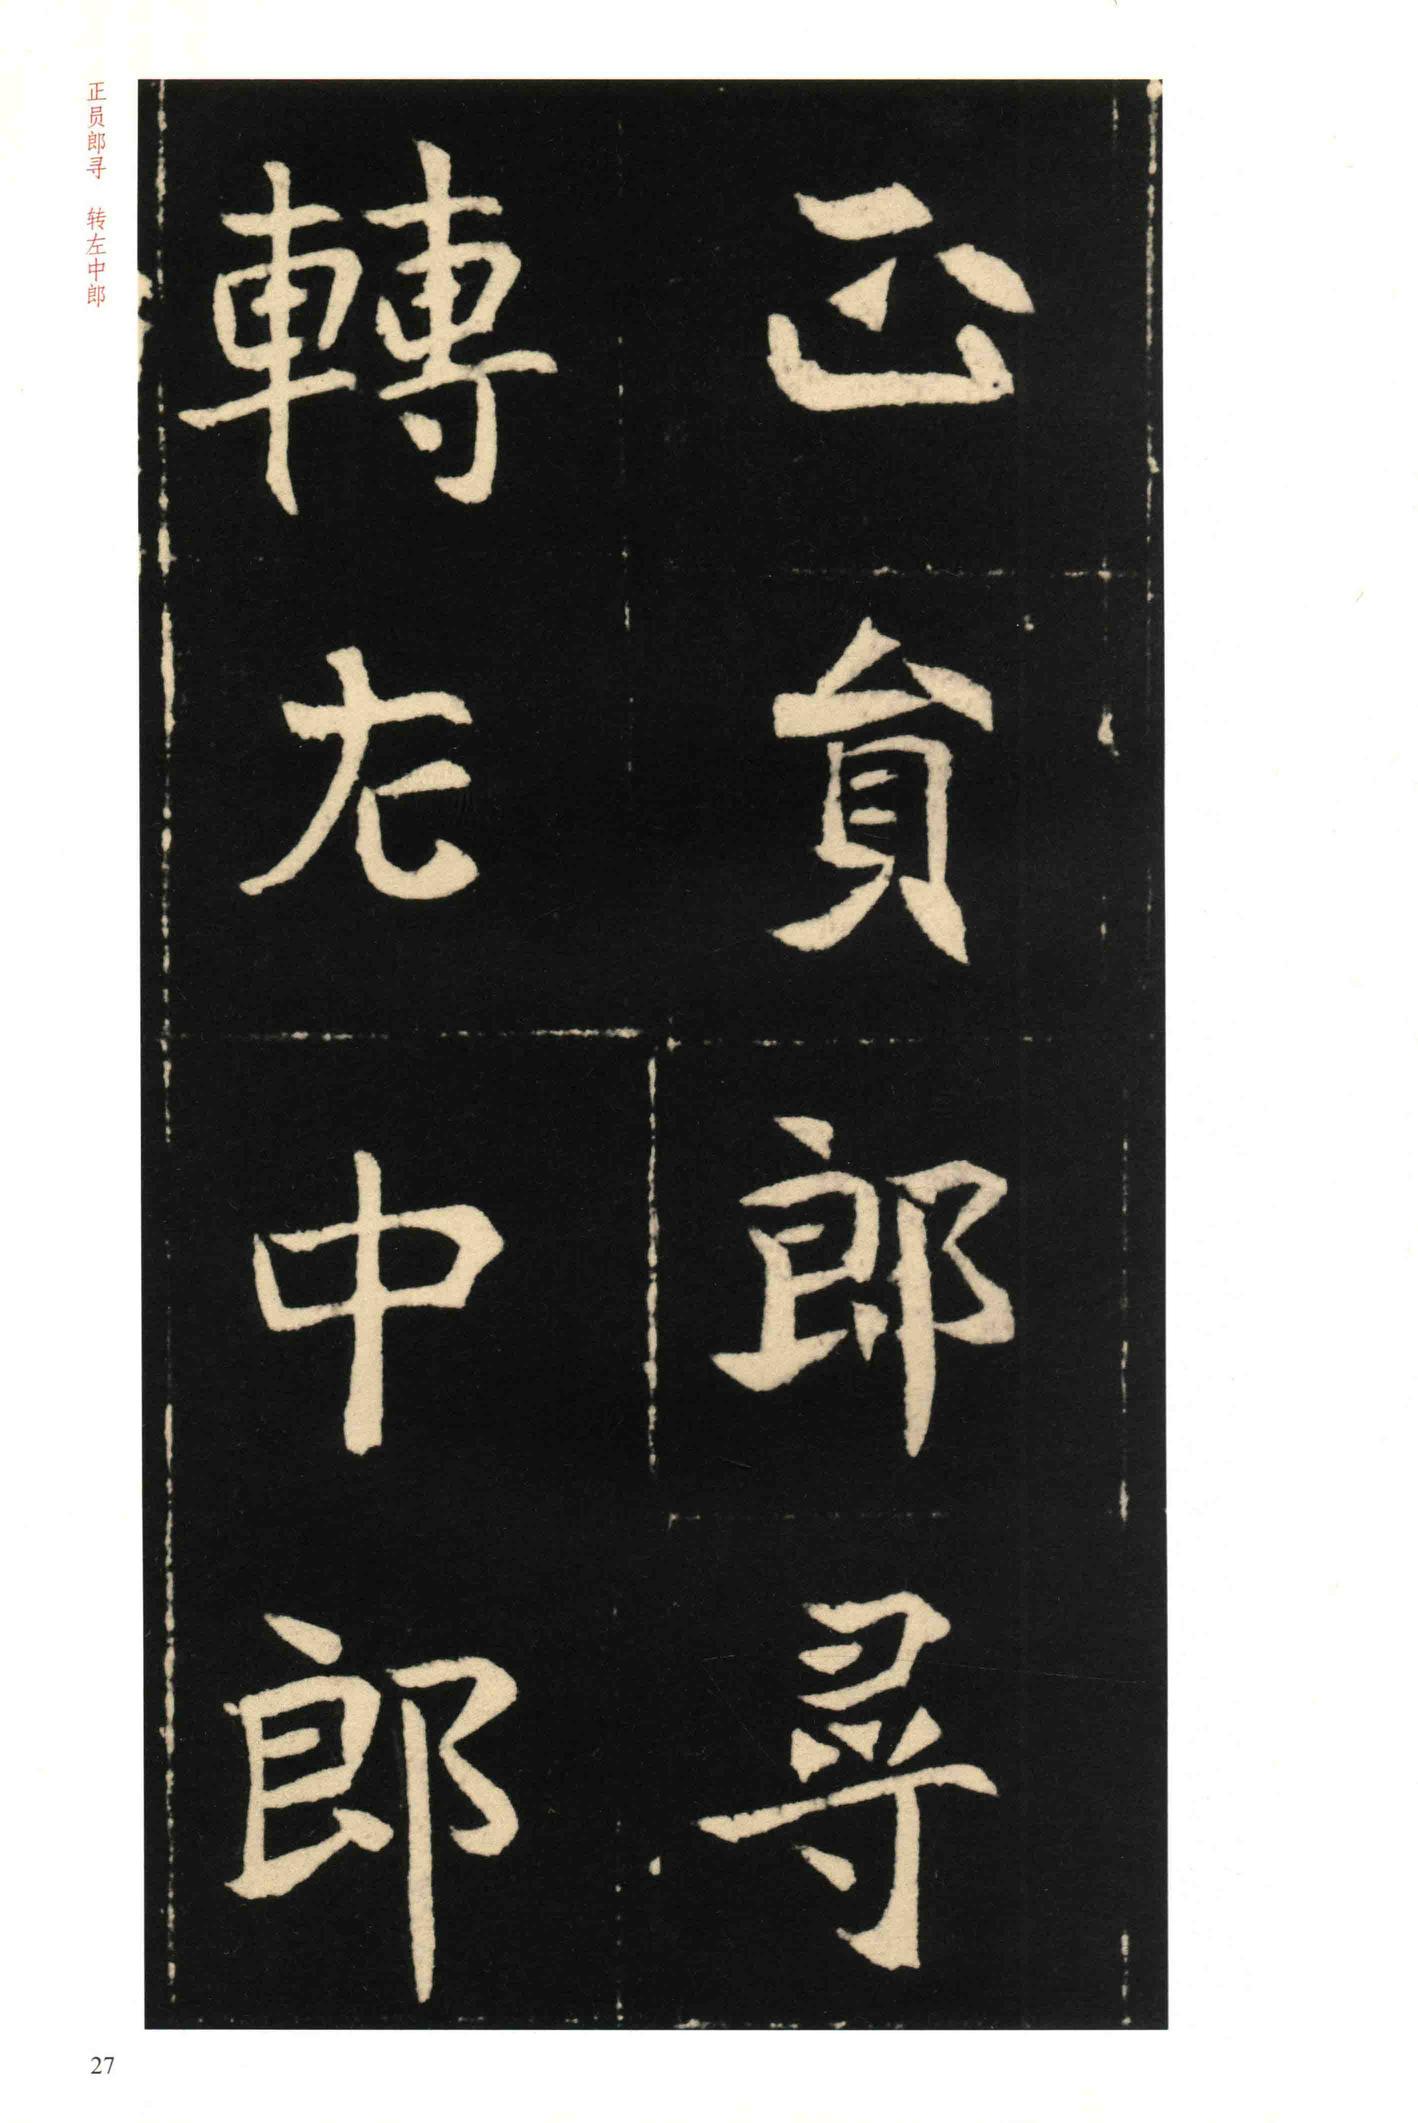 正員郎尋
轉左中郎
正员郎寻 转左中郎
27